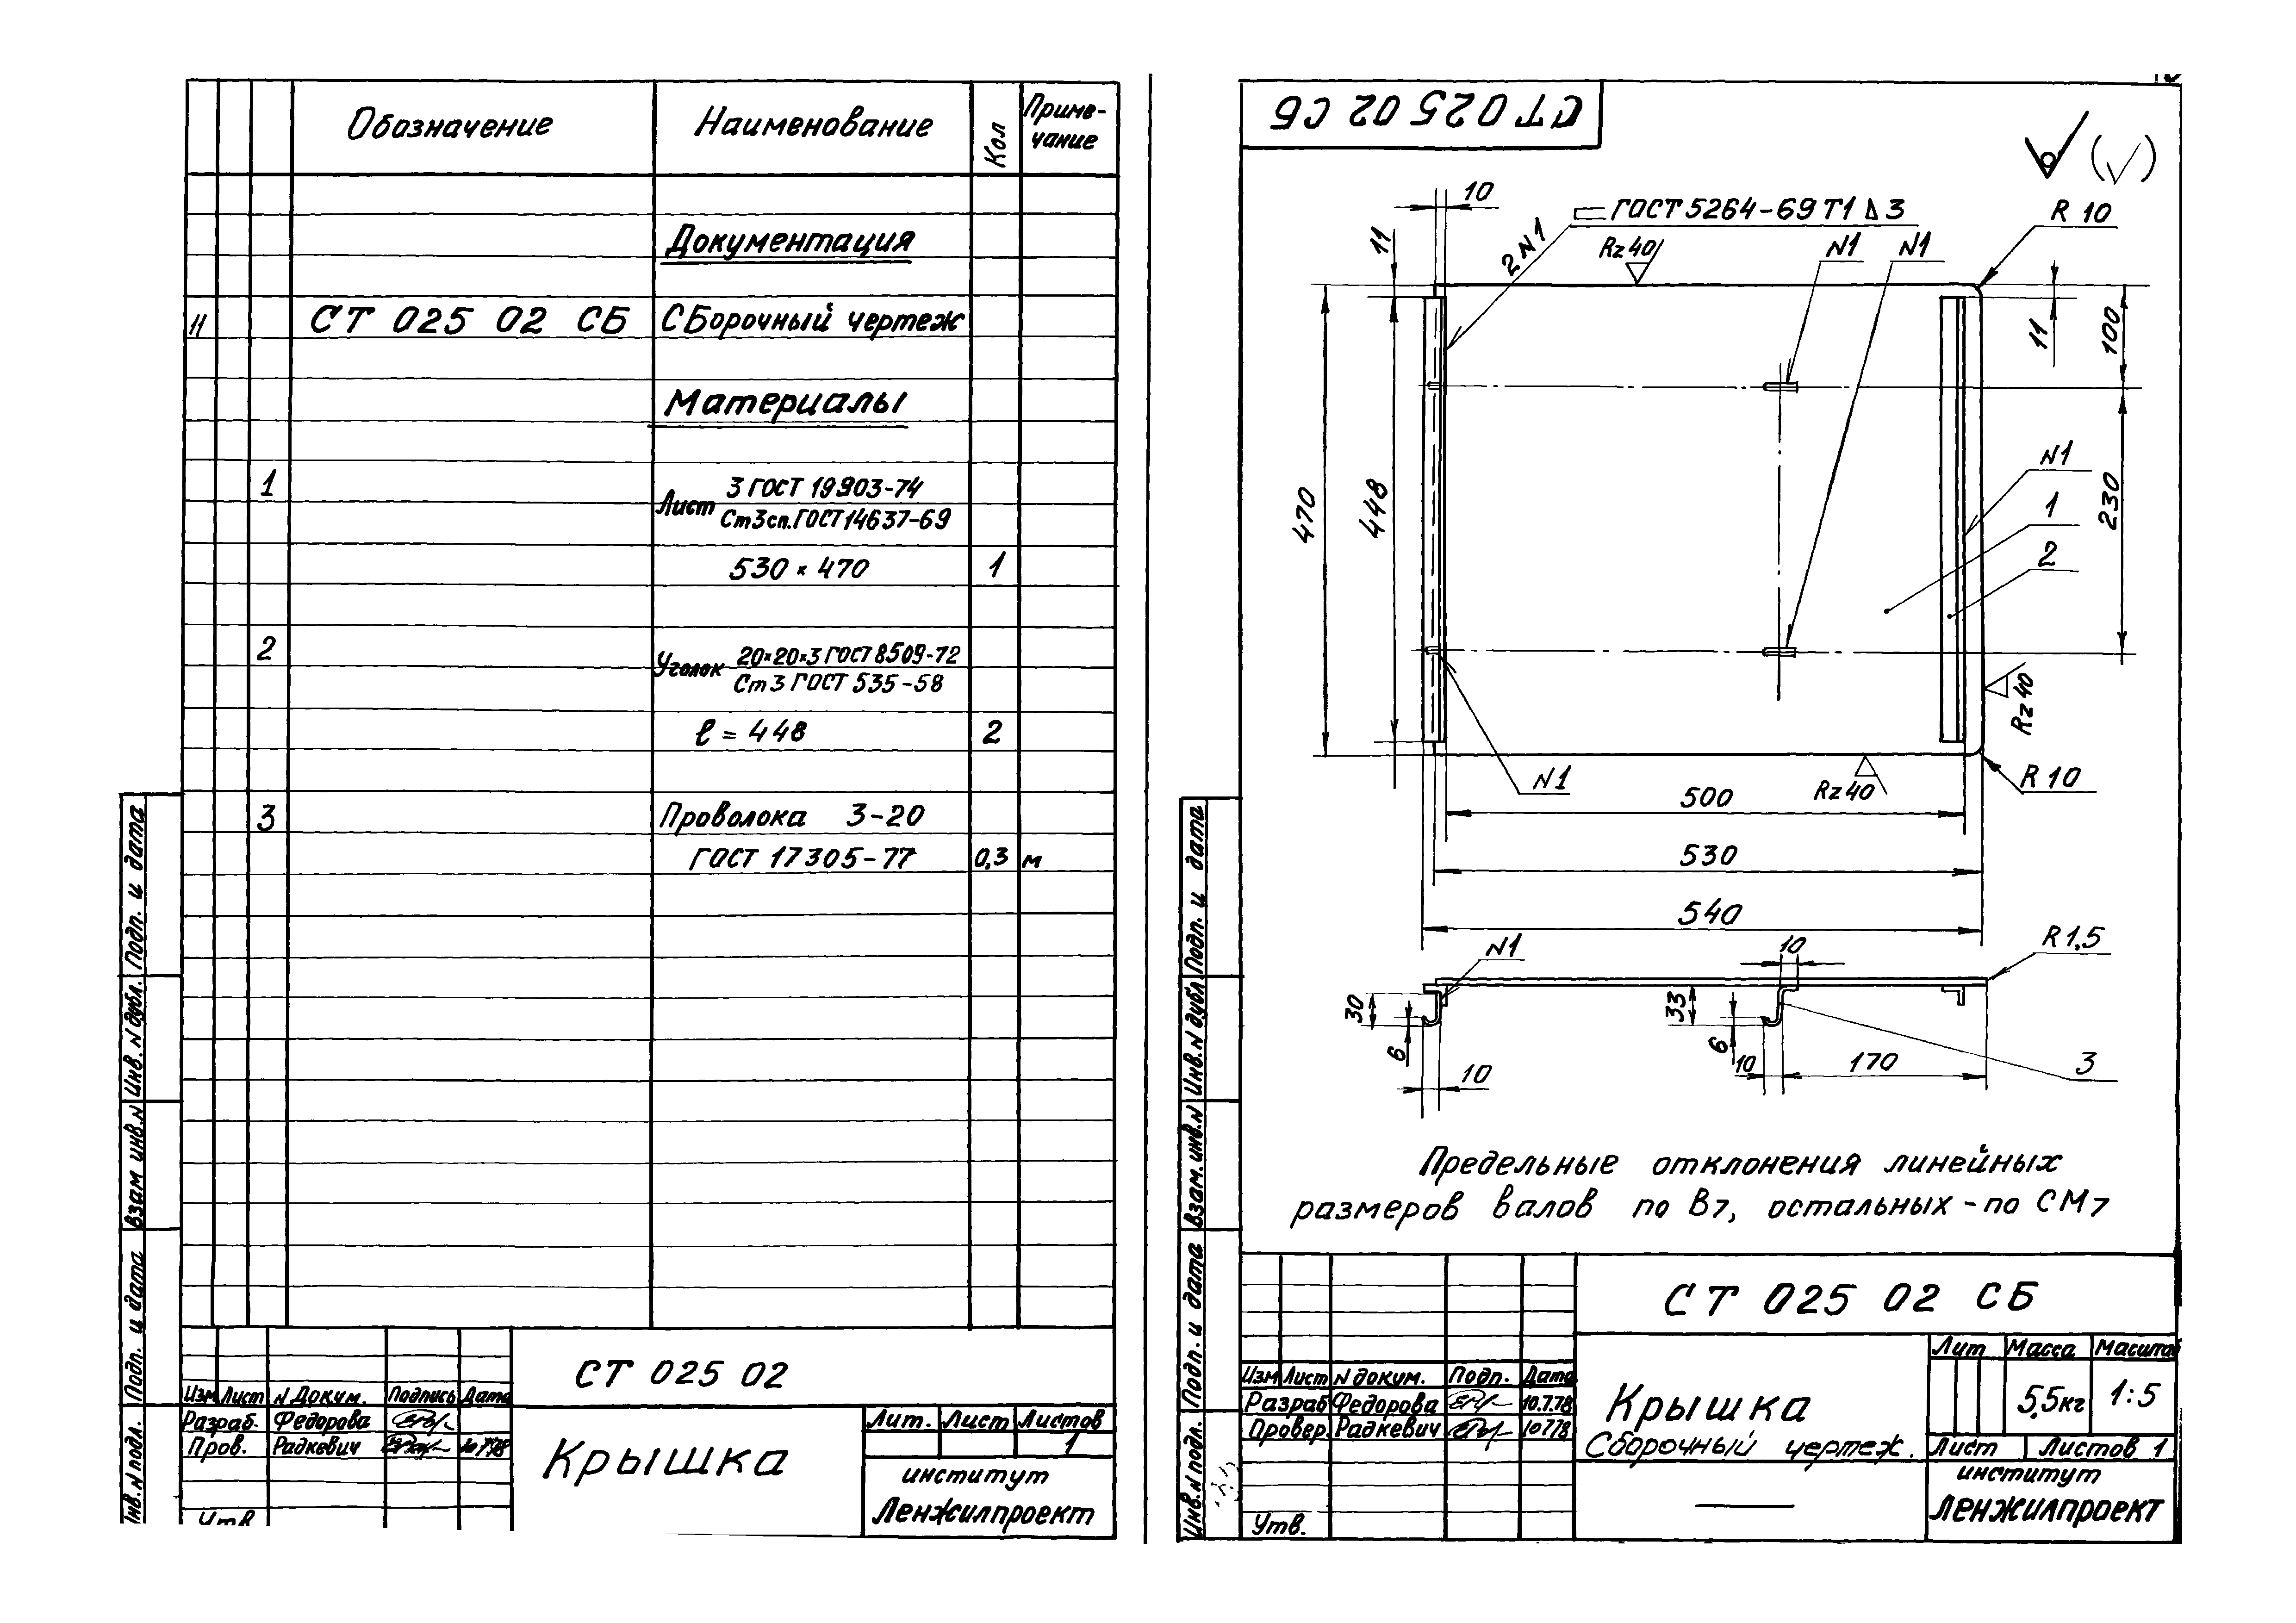 Обозначение
Наименование
Кол
Приме-
чание
Документация
11
СТ 025 02 СБ
СБорочный чертеж
Материалы
1
Лист 3 ГОСТ 19903-74
Ст3сп.ГОСТ14637-69
530 × 470
1
2
Уголок 20×20×3 ГОСТ 8509-72
Ст3 ГОСТ 535-58
ℓ = 448
2
3
Проволока 3-20
ГОСТ 17305-77
0,3 м
Подп. и дата
Инв. N дубл.
Взам инв. N
Подп. и дата
Инв. N подл.
Изм Лист N Докум. Подпись Дата
Разраб. Федорова
Пров. Радкевич 10.7.78
Утв
СТ 025 02
Крышка
Лит. Лист Листов
1
институт
Ленжилпроект
СТ 025 02 СБ
(√)
10
ГОСТ 5264-69 Т1 Δ 3
R 10
11
2 N1
Rz 40
N1
N1
11
100
470
448
N1
1
2
230
Rz 40
N1
Rz 40
R 10
500
530
540
N1
10
R 1,5
30
6
10
33
6
10
170
3
Предельные отклонения линейных
размеров валов по В7, остальных - по СМ7
Подп. и дата
Инв. N дубл
Взам. инв. N
Подп. и дата
Инв. N подл.
СТ 025 02 СБ
Изм Лист N докум. Подп. Дата
Разраб Федорова 10.7.78
Провер. Радкевич 10.7.78
Утв.
Крышка
Сборочный чертеж.
Лит Масса Масштаб
5,5кг 1:5
Лист Листов 1
институт
Ленжилпроект